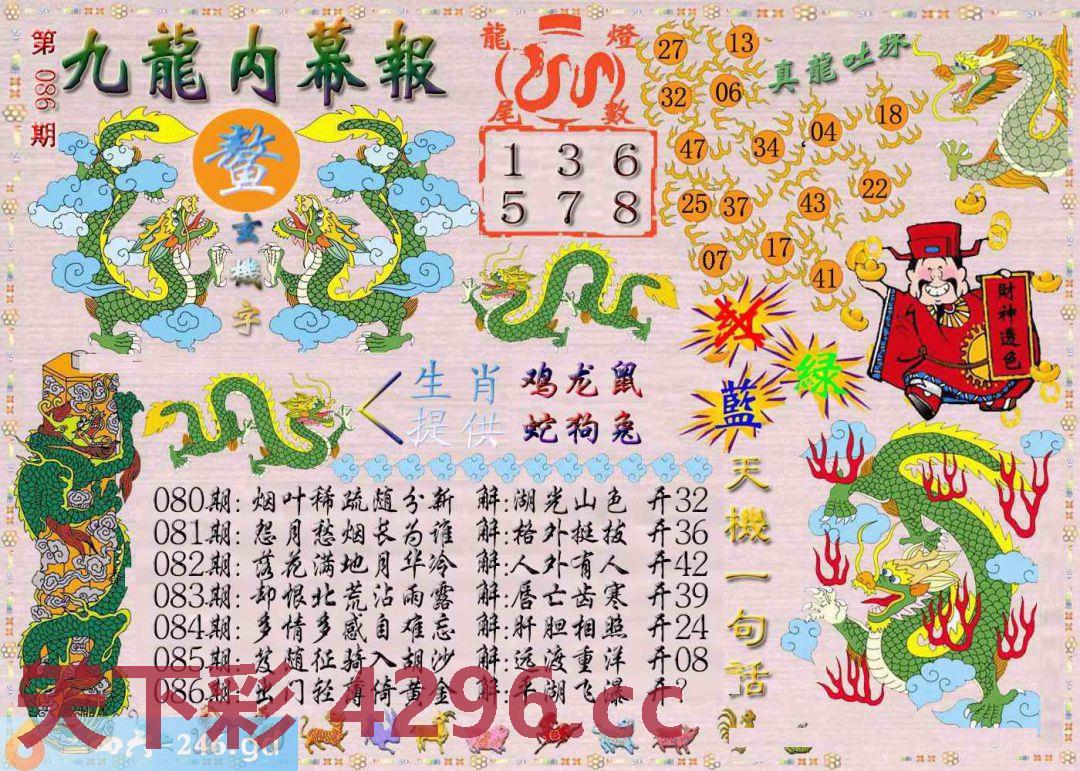 第086期
九龍内幕報
鳌
玄機字
龍燈
尾數
1 3 6
5 7 8
27 13
32 06
47 34 04 18
25 37 43 22
07 17 41
真龍吐珠
財神透色
红
綠
藍
生肖 鸡龙鼠
提供 蛇狗兔
天機一句話
080期: 烟叶稀疏随分新 解:湖光山色 开32
081期: 怨月愁烟长为谁 解:格外挺拔 开36
082期: 落花满地月华冷 解:人外有人 开42
083期: 却恨北荒沾雨露 解:唇亡齿寒 开39
084期: 多情多感自难忘 解:肝胆相照 开24
085期: 笈随征骑入胡沙 解:远渡重洋 开08
086期: 出门轻薄倚黄金 解:平湖飞瀑 开?
天下彩 4296.cc
=246.gd